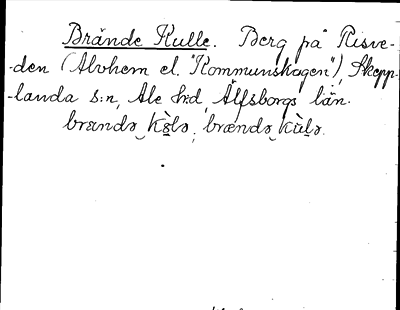 Brände Kulle. Berg på Risve-
-den (Alvhem el. "Kommunskogen"), Skepp-
-landa s:n, Ale h:d, Älfsborgs län.
brændə kùlə.